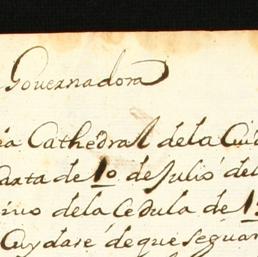 Governadora
Cathedral de la Ciu
carta de 1º de Julio del
de la Cedula de 1
Cuydaré de que se guar